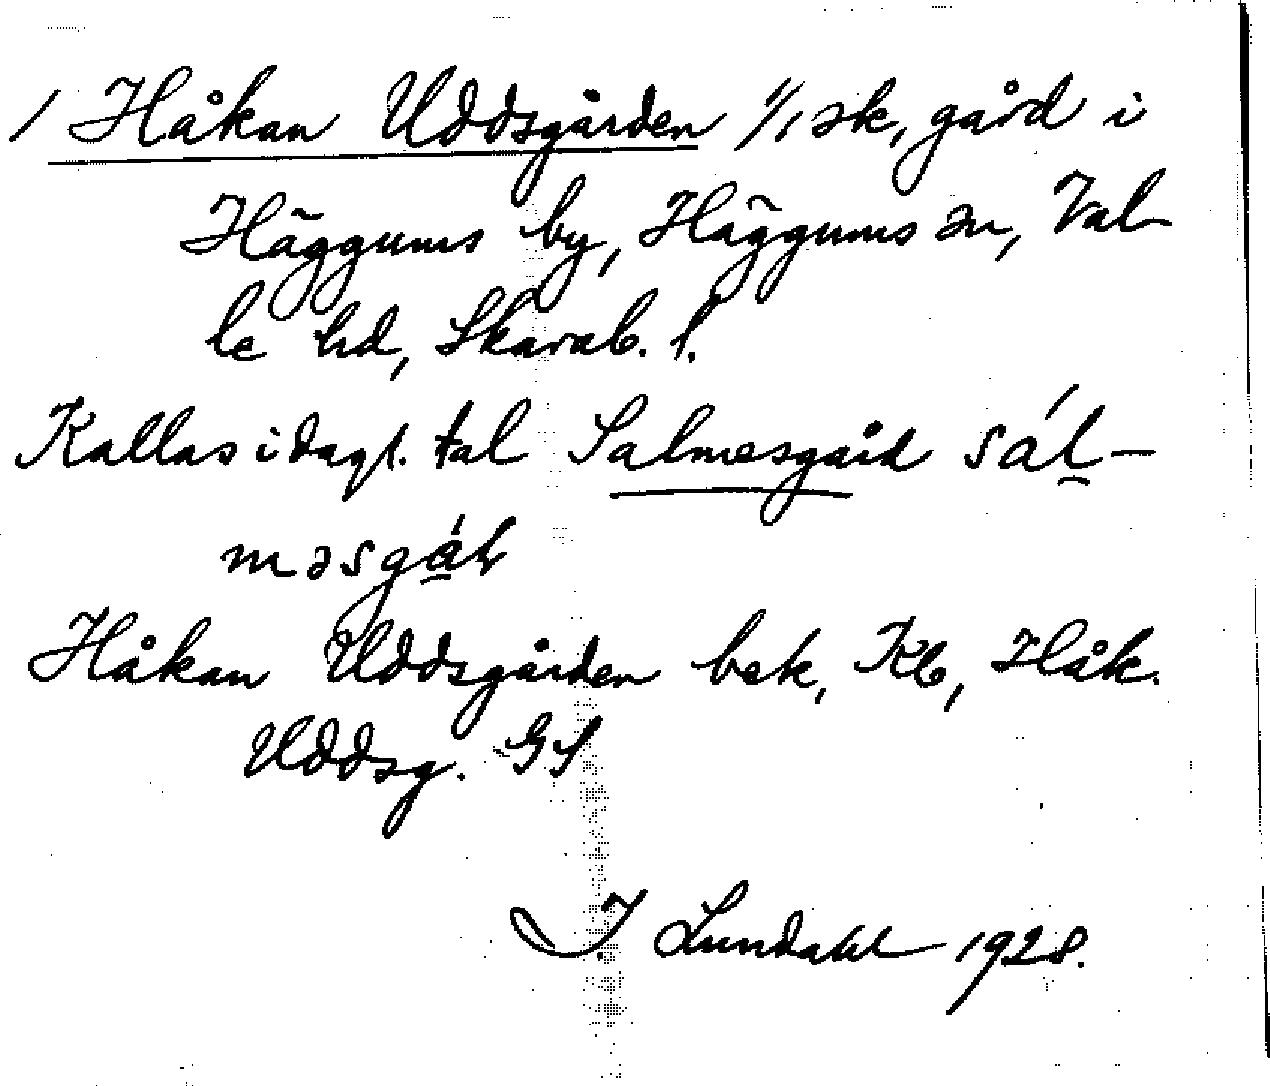 / Håkan Uddsgården 1/1 sk, gård i
Häggums by, Häggums sn, Val-
le hd, Skarab. l.
Kallas i dagl. tal Salmesgård sál-
məsgáɽ
Håkan Uddsgården bek, Kb, Håk.
Uddsg. GS
I. Lundahl 1928.